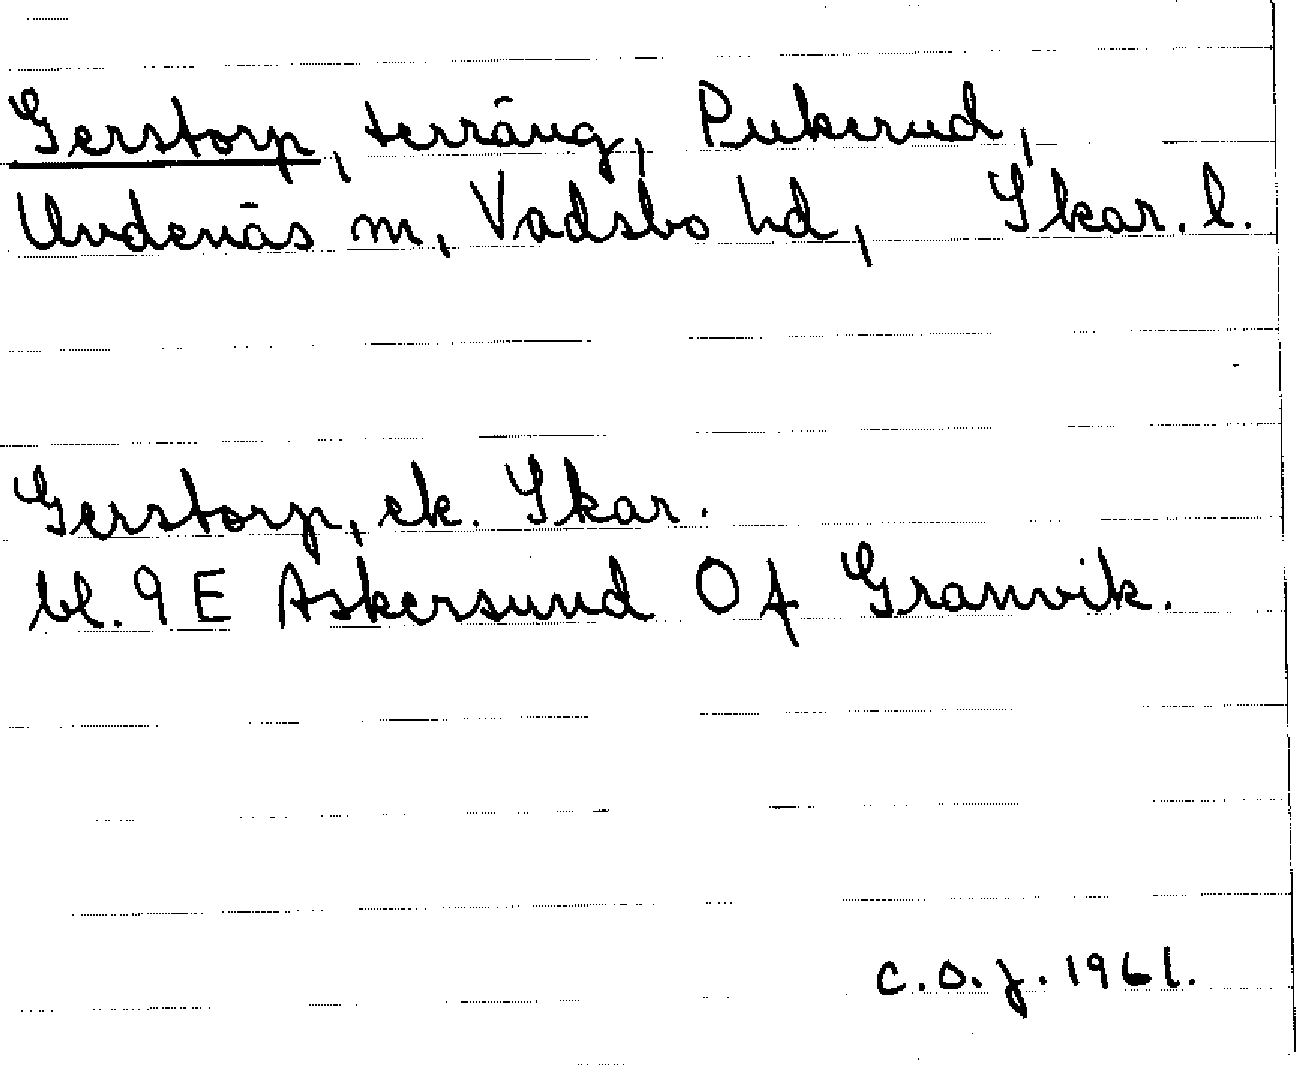 Gerstorp, terräng, Pukerud,
Undenäs sn, Vadsbo hd, Skar. l.
Gerstorp, ek. Skar.
bl. 9 E Askersund 0 f Granvik.
C.O.J. 1961.